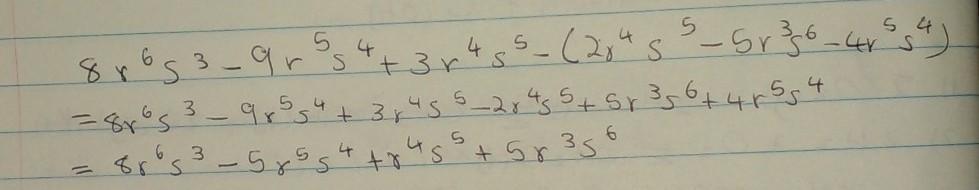 8r⁶s³ - 9r⁵s⁴ + 3r⁴s⁵ - (2r⁴s⁵ - 5r³s⁶ - 4r⁵s⁴)
= 8r⁶s³ - 9r⁵s⁴ + 3r⁴s⁵ - 2r⁴s⁵ + 5r³s⁶ + 4r⁵s⁴
= 8r⁶s³ - 5r⁵s⁴ + r⁴s⁵ + 5r³s⁶